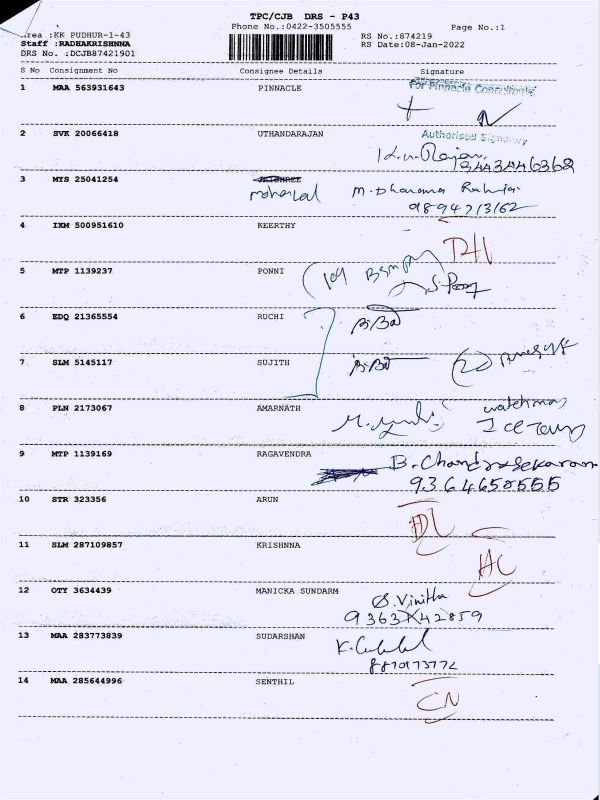 TPC/CJB DRS - P43
Area :KK PUDHUR-1-43
Phone No.:0422-3505555
Page No.:1
Staff :RADHAKRISHNNA
RS No.:874219
DRS No. :DCJB87421901
RS Date:08-Jan-2022
S No Consignment No Consignee Details Signature
1 MAA 563931643 PINNACLE For Pinnacle
2 SVK 20066418 UTHANDARAJAN Authorised Signatory
K.n. Rajan
9443446368
3 MTS 25041254 JAISHREE M. Dharama
9894713162
4 IXM 500951610 KEERTHY
5 MTP 1139237 PONNI
6 EDQ 21365554 RUCHI
7 SLM 5145117 SUJITH
8 PLN 2173067 AMARNATH watchman
9 MTP 1139169 RAGAVENDRA B. Chandrasekaran
9364658555
10 STR 323356 ARUN
DL
11 SLM 287109857 KRISHNNA
12 OTY 3634439 MANICKA SUNDARM S. Vinitha
9363742859
13 MAA 283773839 SUDARSHAN
14 MAA 285644996 SENTHIL
CN